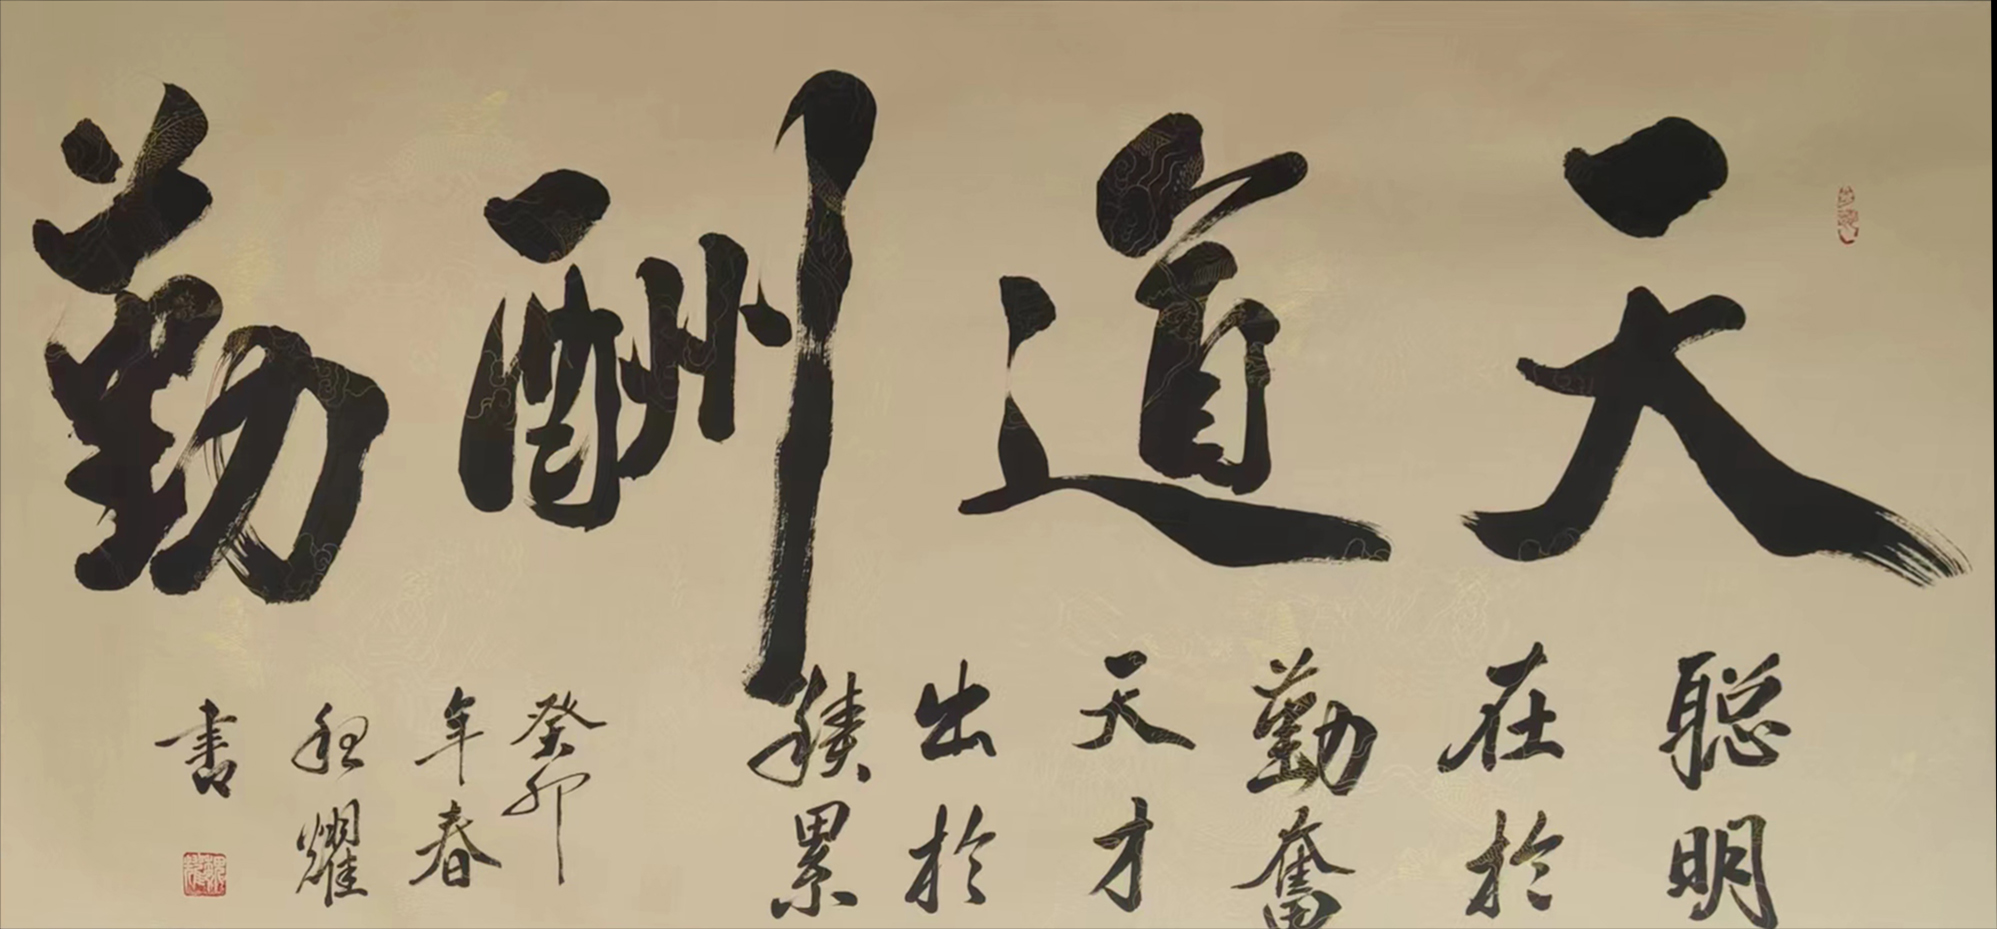 天道酬勤
聪明
在於
勤奮
天才
出於
積累
癸卯
年春
耀
書